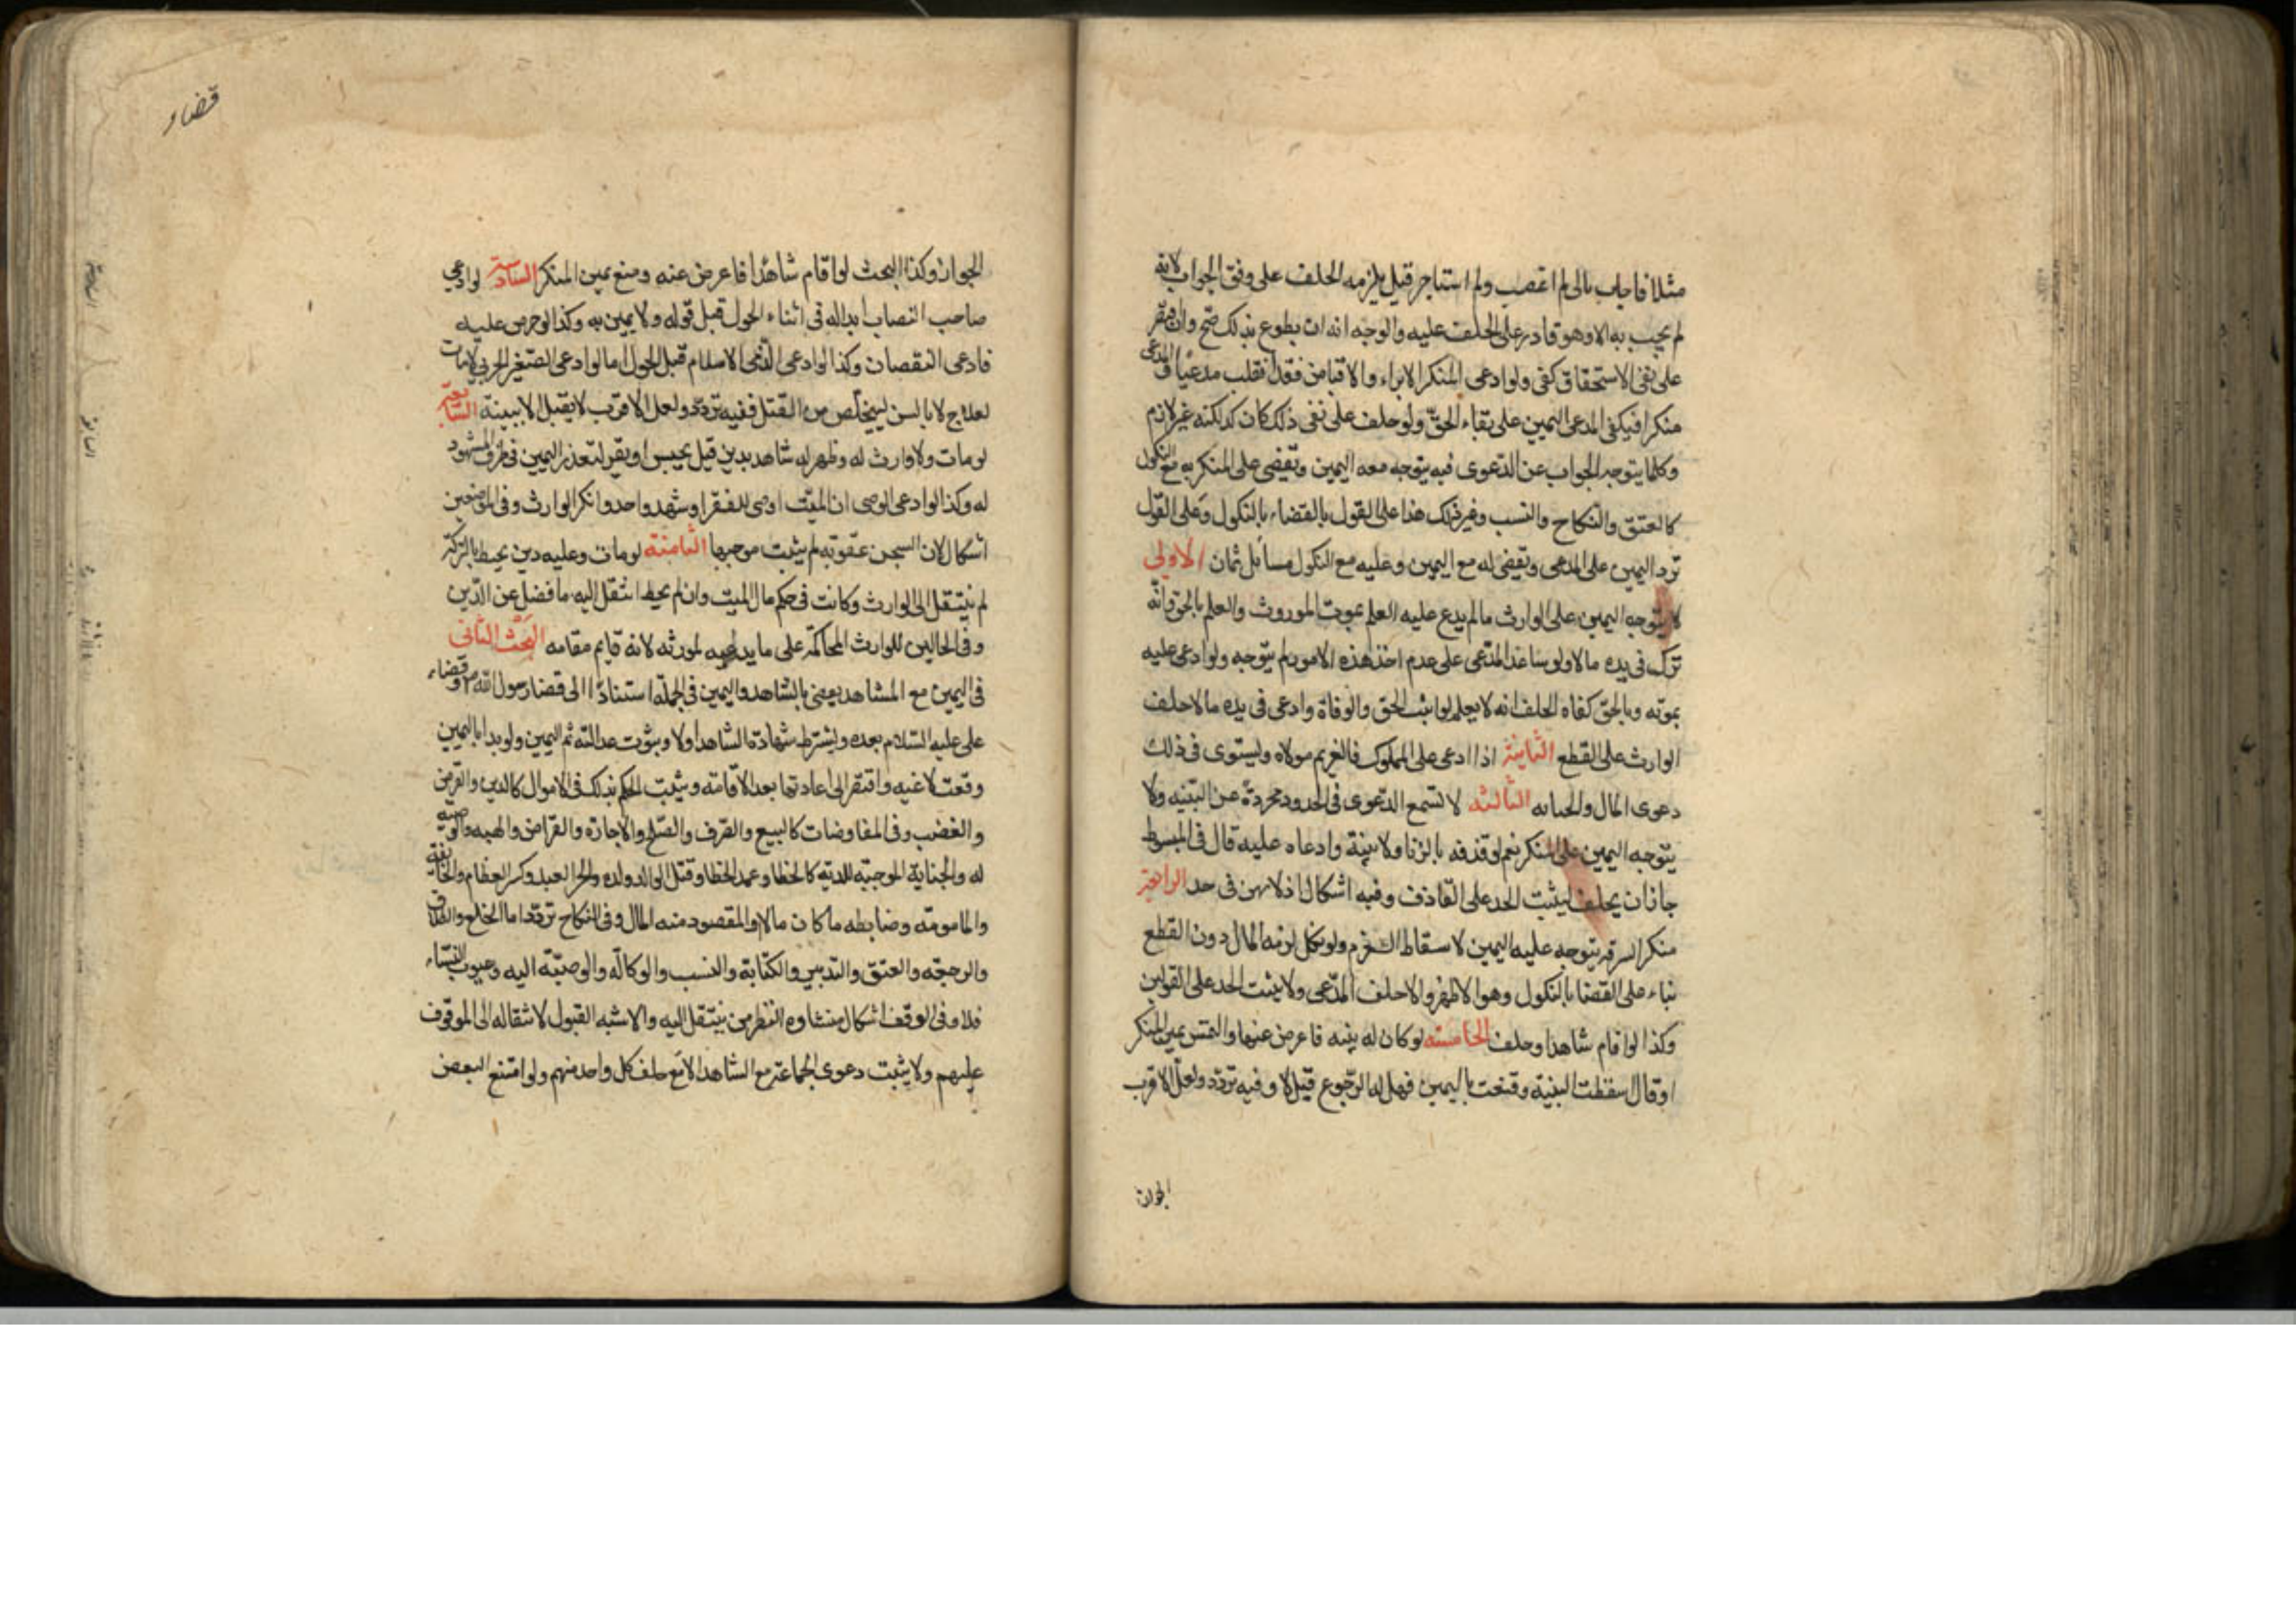 مثلا فاجاب بانى لم اغصب ولم استاجر قيل يلزمه الحلف على وفق الجواب لانه
لم يجيب به الا وهو قادر على الحلف عليه والوجه انه ان يطوع بذلك صح وان اقتصر
على نفى الاستحقاق كفى ولو ادعى المنكر الابراء والاقباض فقد انقلب مدعيا والمدعى
منكرا فيكفى المدعى اليمين على بقاء الحق ولو حلف على نفى ذلك كان كد لكنه غير لازم
وكلما يتوجه الجواب عن الدعوى فيه يتوجه معه اليمين وتقضى على المنكر به مع النكول
كالعتق والنكاح والنسب وغير ذلك هذا على القول بالقضاء بالنكول وعلى القول
ترد اليمين على المدعى ويقضى له مع اليمين وعليه مع النكول مسائل ثمان الاولى
لا يتوجه اليمين على الوارث ما لم يدع عليه العلم بموت الموروث والعلم بالحق وانه
ترك فى يده مالا ولو ساعد المدعى على عدم احد هذه الامور لم يتوجه ولو ادعى عليه
بموته وبالحق كفاه الحلف انه لا يعلم لو اثبت الحق والوفاة وادعى فى يده مالا حلف
الوارث على القطع الثانية اذا ادعى على المملوك فالغريم مولاه وليستوى فى ذلك
دعوى المال والجنايه الثالثه لا تسمع الدعوى فى الحدود مجردة عن البينه ولا
يتوجه اليمين على المنكر نعم لو قذفه بالزنا ولا بينة وادعاه عليه قال فى المبسوط
جاز ان يحلف ليثبت الحد على القاذف وفيه اشكال اذ لا يمين فى حد الرابعة
منكر السرقه يتوجه عليه اليمين لاسقاط الغرم ولو نكل لزمه المال دون القطع
بناء على القضا بالنكول وهو الاظهر والا حلف المدعى ولا يثبت الحد على القولين
وكذا لو اقام شاهدا وحلف الخامسه لو كان له بينه فاعرض عنها والتمس يمين المنكر
او قال سقطت البنية وقنعت باليمين فهل له الرجوع قيل لا وفيه تردد ولعل الاقرب
الجواز
قضاء
الجواز وكذا البحث لو اقام شاهدا فاعرض عنه ومنع يمين المنكر السادسة لو ادعى
صاحب النصاب ابداله فى اثناء الحول قبل قوله ولا يمين به وكذا لو خرص عليه
فادعى النقصان وكذا لو ادعى الذمى الاسلام قبل الحول اما لو ادعى الصغير الحربى الانبات
لعلاج لا بالسن ليتخلص من القتل ففيه تردد ولعل الاقرب لا يقبل الا ببينة السابعة
لو مات ولا وارث له وظهر له شاهد بدين قيل يحبس او يقر لتعذر اليمين فى طرف المشهود
له وكذا لو ادعى الوصى ان الميت اوصى للفقراء وشهد واحد وانكر الوارث وفى الموضعين
اشكال لان السجن عقوبة لم يثبت موجبها الثامنة لو مات وعليه دين يحيط بالتركة
لم ينتقل الى الوارث وكانت فى حكم مال الميت وان لم يحط انتقل اليه ما فضل عن الدين
وفى الحالين للوارث المحاكمة على ما يدعيه لمورثه لانه قايم مقامه البحث الثانى
فى اليمين مع الشاهد يقضى بالشاهد واليمين فى الجملة استنادا الى قضا رسول الله ص وقضاء
على عليه السلام بعده ويشترط شهادة الشاهد اولا وثبوت عدالته ثم اليمين ولو بدا باليمين
وقعت لاغيه وافتقر الى اعادتها بعد الاقامته ويثبت الحكم بذلك فى الاموال كالدين والقرض
والغضب وفى المفاوضات كالبيع والصرف والصلح والاجارة والقراض والهبه والوصيه
له والجناية الموجبة للدية كالخطا وعمد الخطا وقتل الوالد ولده والحر العبد وكسر العظام والجائفة
والمامومة وضابطه ما كان مالا والمقصود منه المال وفى النكاح تردد اما الخلع والطلاق
والرجعة والعتق والتدبير والكتابة والنسب والوكالة والوصية اليه وعيوب النساء
فلا وفى الوقف اشكال منشاوه النظر من ينتقل اليه والاشبه القبول لانتقاله الى الموقوف
عليهم ولا يثبت دعوى الجماعة مع الشاهد الا مع حلف كل واحد منهم ولو امتنع البعض